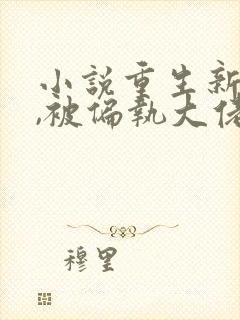 小説重生新
,被偏執大佬
穆里